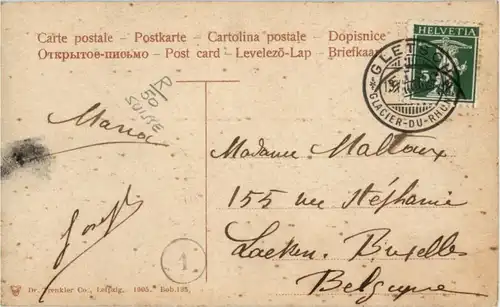 Carte postale – Postkarte – Cartolina postale – Dopisnice
Открытое-письмо – Post card – Levelező-Lap – Briefkaart
HELVETIA
5
GLETSCH
GLACIER-DU-RHONE
SUISSE
Maria
Joseph
Madame Maltaux
155 rue Stéphanie
Laeken. Bruxelles
Belgique
1
Dr. Trenkler Co., Leipzig. 1905. Bob. 125.